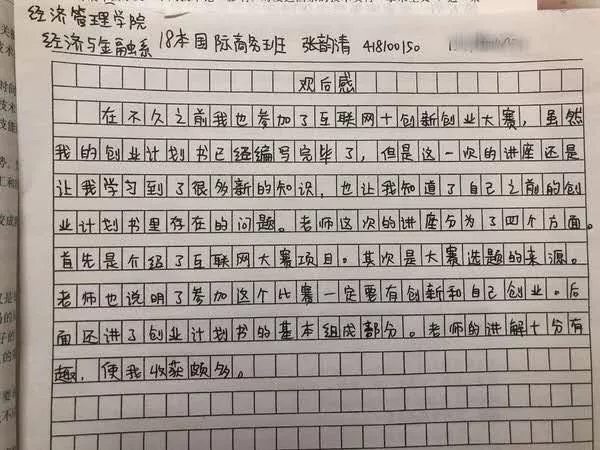 经济管理学院
经济与金融系 18本国际商务班 张韵清 418100150
观后感
在不久之前我也参加了互联网十创新创业大赛，虽然
我的创业计划书已经编写完毕了，但是这一次的讲座还是
让我学习到了很多新的知识，也让我知道了自己之前的创
业计划书里存在的问题。老师这次的讲座分为了四个方面。
首先是介绍了互联网大赛项目。其次是大赛选题的来源。
老师也说明了参加这个比赛一定要有创新和自己创业。后
面还讲了创业计划书的基本组成部分。老师的讲解十分有
趣，使我收获颇多。